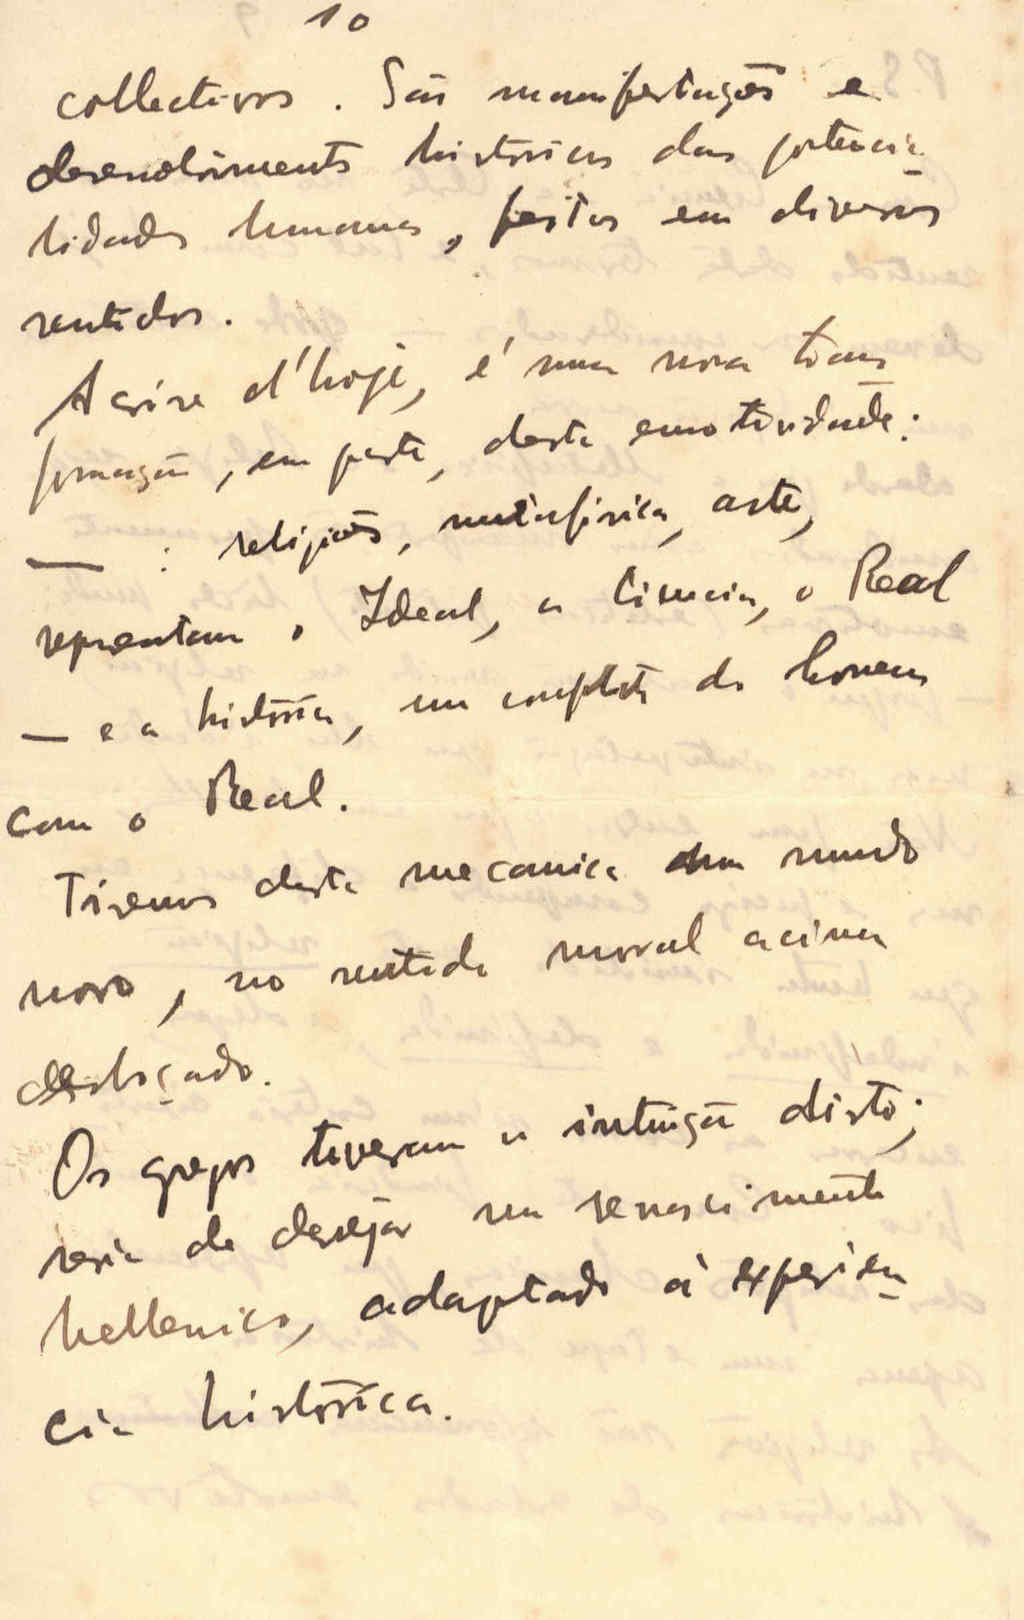 10
collectivos. São manifestações e
desenvolvimento históricos das potencia
lidades humanas, feitos em diversos
sentidos.
A crise d'hoje, é uma nova trans
formação, em parte, desta emotividade:
— : religiões, metafisica, arte,
representam o Ideal, a Ciencia, o Real
— e a história, um complexo do homem
com o Real.
Tiremos desta mecanica um mundo
novo, no sentido moral acima
desloçado.
Os gregos tiveram a intuição disto;
seria de desejar um renascimento
hellenico, adaptado à experien
cia histórica.